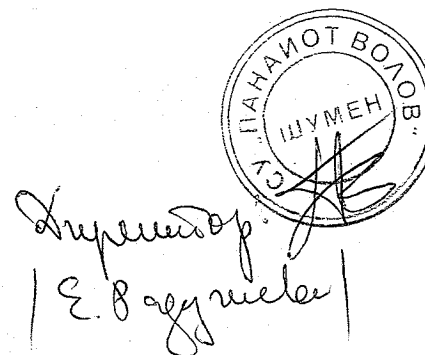 СУ "ПАНАЙОТ ВОЛОВ"
ШУМЕН
Директор:
/Е. Радушева/